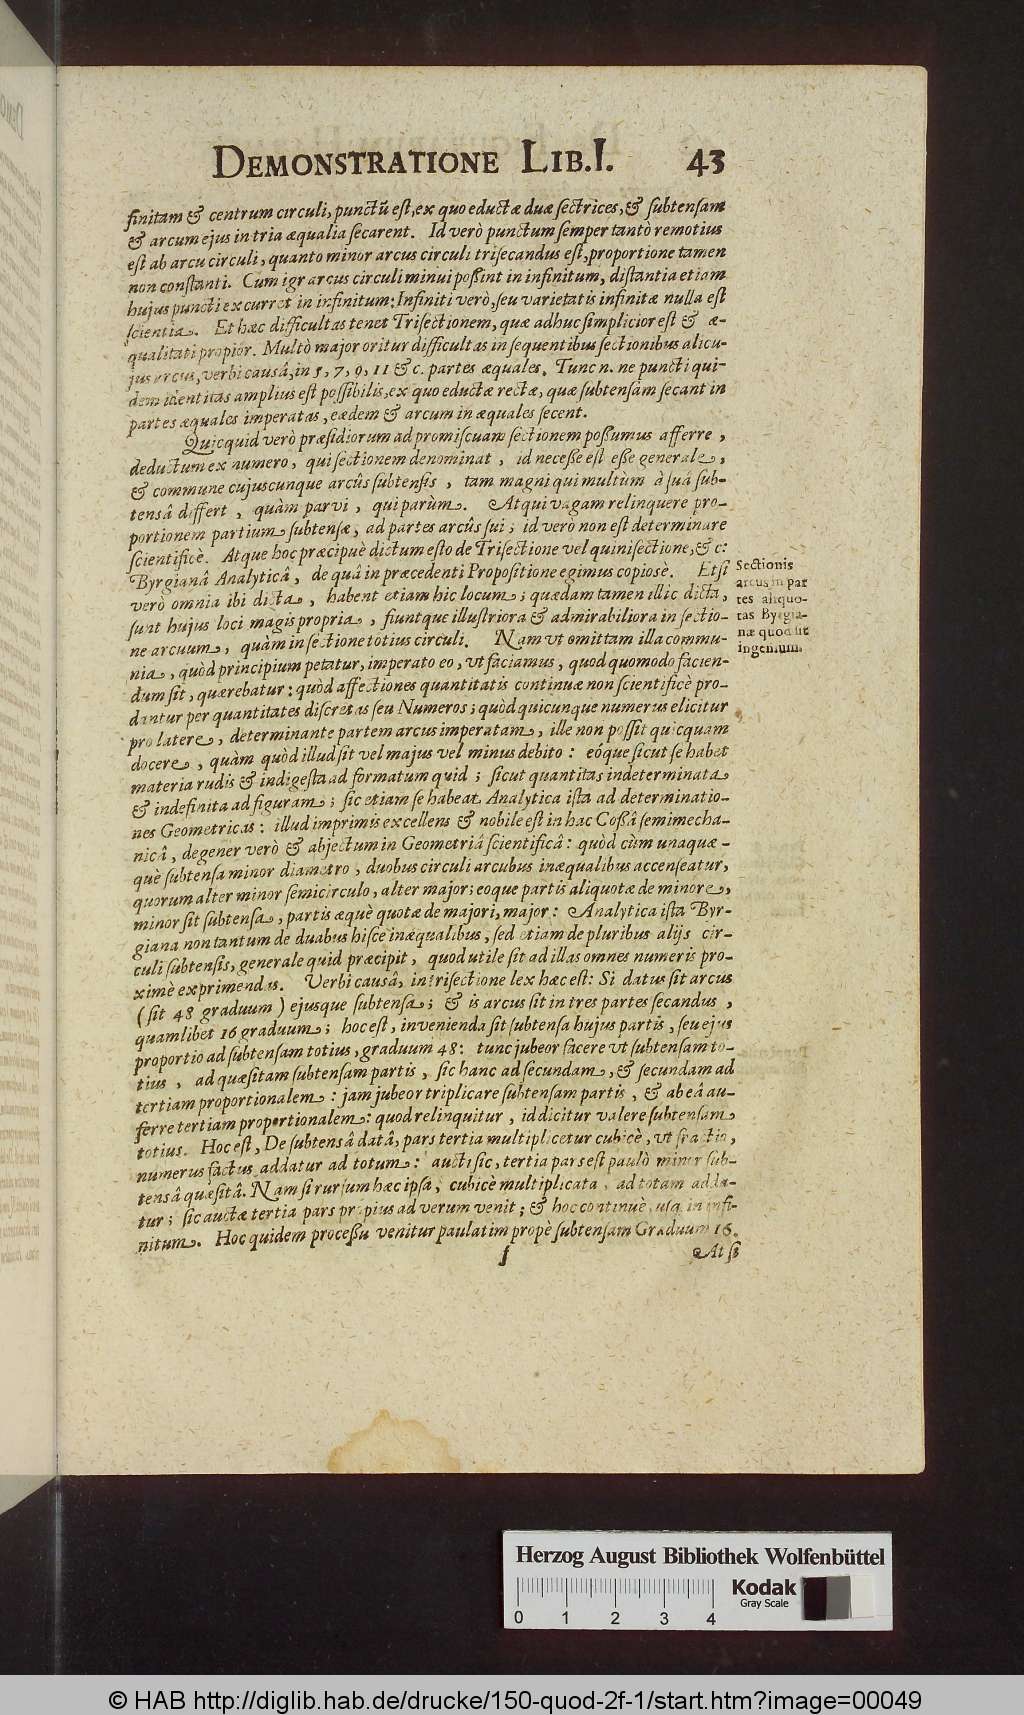 DEMONSTRATIONE LIB. I. 43
finitam & centrum circuli, punctũ est, ex quo eductæ duæ sectrices, & subtensam
& arcum ejus in tria æqualia secarent. Id verò punctum semper tantò remotius
est ab arcu circuli, quanto minor arcus circuli trisecandus est, proportione tamen
non constanti. Cum igr arcus circuli minui possint in infinitum, distantia etiam
hujus puncti excurret in infinitum: Infiniti verò, seu varietatis infinitæ nulla est
scientia. Et hæc difficultas tenet Trisectionem, quæ adhuc simplicior est & æ-
qualitati propior. Multò major oritur difficultas in sequentibus sectionibus alicu-
jus arcus, verbi causâ, in 5, 7, 9, 11 & c. partes æquales. Tunc n. ne puncti qui-
dem identitas amplius est possibilis, ex quo eductæ rectæ, quæ subtensam secant in
partes æquales imperatas, eædem & arcum in æquales secent.
Quicquid verò præsidiorum ad promiscuam sectionem possumus afferre,
deductum ex numero, qui sectionem denominat, id necesse est esse generale,
& commune cujuscunque arcûs subtensis, tam magni qui multum à suâ sub-
tensâ differt, quàm parvi, qui parùm. Atqui vagam relinquere pro-
portionem partium subtensæ, ad partes arcûs sui; id verò non est determinare
scientificè. Atque hoc præcipuè dictum esto de Trisectione vel quinisectione, & c:
Byrgianâ Analyticâ, de quâ in præcedenti Propositione egimus copiosè. Etsi
verò omnia ibi dicta, habent etiam hic locum; quædam tamen illic dicta,
sunt hujus loci magis propria, fiuntque illustriora & admirabiliora in sectio-
ne arcuum, quàm in sectione totius circuli. Nam ut omittam illa commu-
nia, quòd principium petatur, imperato eo, vt faciamus, quod quomodo facien-
dum sit, quærebatur: quòd affectiones quantitatis continuæ non scientificè pro-
dantur per quantitates discretas seu Numeros; quòd quicunque numerus elicitur
pro latere, determinante partem arcus imperatam, ille non possit quicquam
docere, quàm quòd illud sit vel majus vel minus debito: eóque sicut se habet
materia rudis & indigesta ad formatum quid; sicut quantitas indeterminata
& indefinita ad figuram; sic etiam se habeat Analytica ista ad determinatio-
nes Geometricas: illud imprimis excellens & nobile est in hac Cossâ semimecha-
nicâ, degener verò & abjectum in Geometriâ scientificâ: quòd cùm unaquæ-
què subtensa minor diametro, duobus circuli arcubus inæqualibus accenseatur,
quorum alter minor semicirculo, alter major; eoque partis aliquotæ de minore,
minor sit subtensa, partis æquè quotæ de majori, major: Analytica ista Byr-
giana non tantum de duabus hisce inæqualibus, sed etiam de pluribus alijs cir-
culi subtensis, generale quid præcipit, quod utile sit ad illas omnes numeris pro-
ximè exprimendas. Verbi causâ, in trisectione lex hæc est: Si datus sit arcus
(sit 48 graduum) ejusque subtensa; & is arcus sit in tres partes secandus,
quamlibet 16 graduum; hoc est, invenienda sit subtensa hujus partis, seu ejus
proportio ad subtensam totius, graduum 48: tunc jubeor facere vt subtensam to-
tius, ad quæsitam subtensam partis, sic hanc ad secundam, & secundam ad
tertiam proportionalem: jam jubeor triplicare subtensam partis, & ab eâ au-
ferre tertiam proportionalem: quod relinquitur, id dicitur valere subtensam
totius. Hoc est, De subtensâ datâ, pars tertia multiplicetur cubicè, ut fractio,
numerus factus addatur ad totum: aucti sic, tertia pars est paulò minor sub-
tensâ quæsitâ. Nam si rursum hæc ipsa, cubicè multiplicata, ad totam adda-
tur; sic auctæ tertia pars propius ad verum venit; & hoc continuè, usq; in infi-
nitum. Hoc quidem processu venitur paulatim propè subtensam Graduum 16.
f At si
Sectionis
arcus in par
tes aliquo-
tas Byrgia-
næ quod sit
ingenium.
Herzog August Bibliothek Wolfenbüttel
0 1 2 3 4
Kodak
Gray Scale
© HAB http://diglib.hab.de/drucke/150-quod-2f-1/start.htm?image=00049